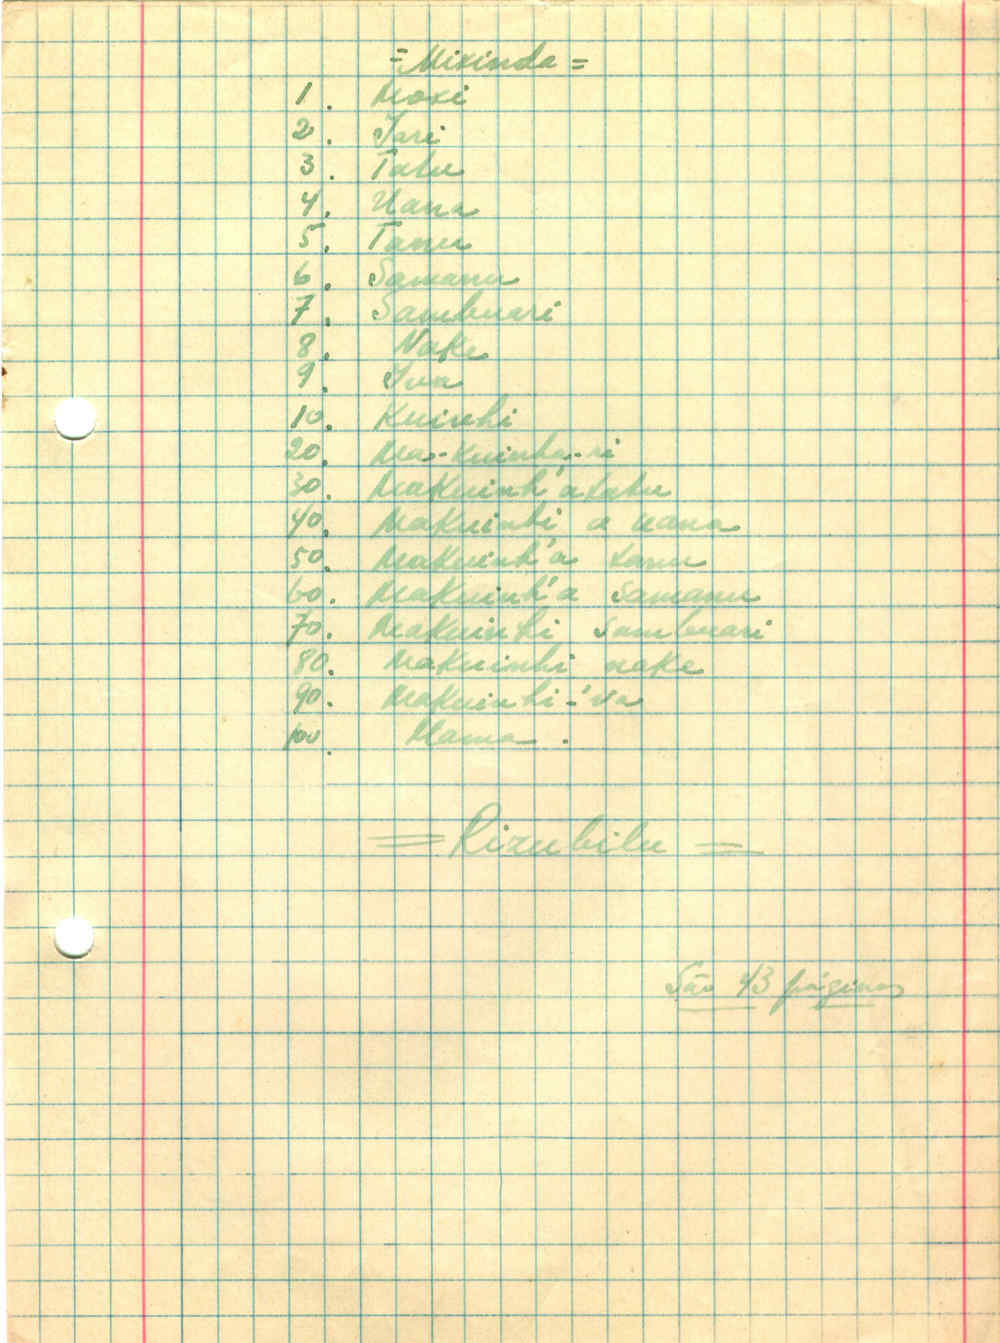 = Mixinda =
1. Moxi
2. Iari
3. Tatu
4. Uana
5. Tanu
6. Samanu
7. Sambuari
8. Nake
9. Iva
10. Kuinhi
20. Ma-kuinha-ri
30. Makuinh'atatu
40. Makuinhi a uana
50. Makuinh'a tanu
60. Makuinh'a samanu
70. Makuinhi sambuari
80. Makuinhi nake
90. Makuinhi-'va
100. Hama.
= Rizubilu =
São 43 páginas